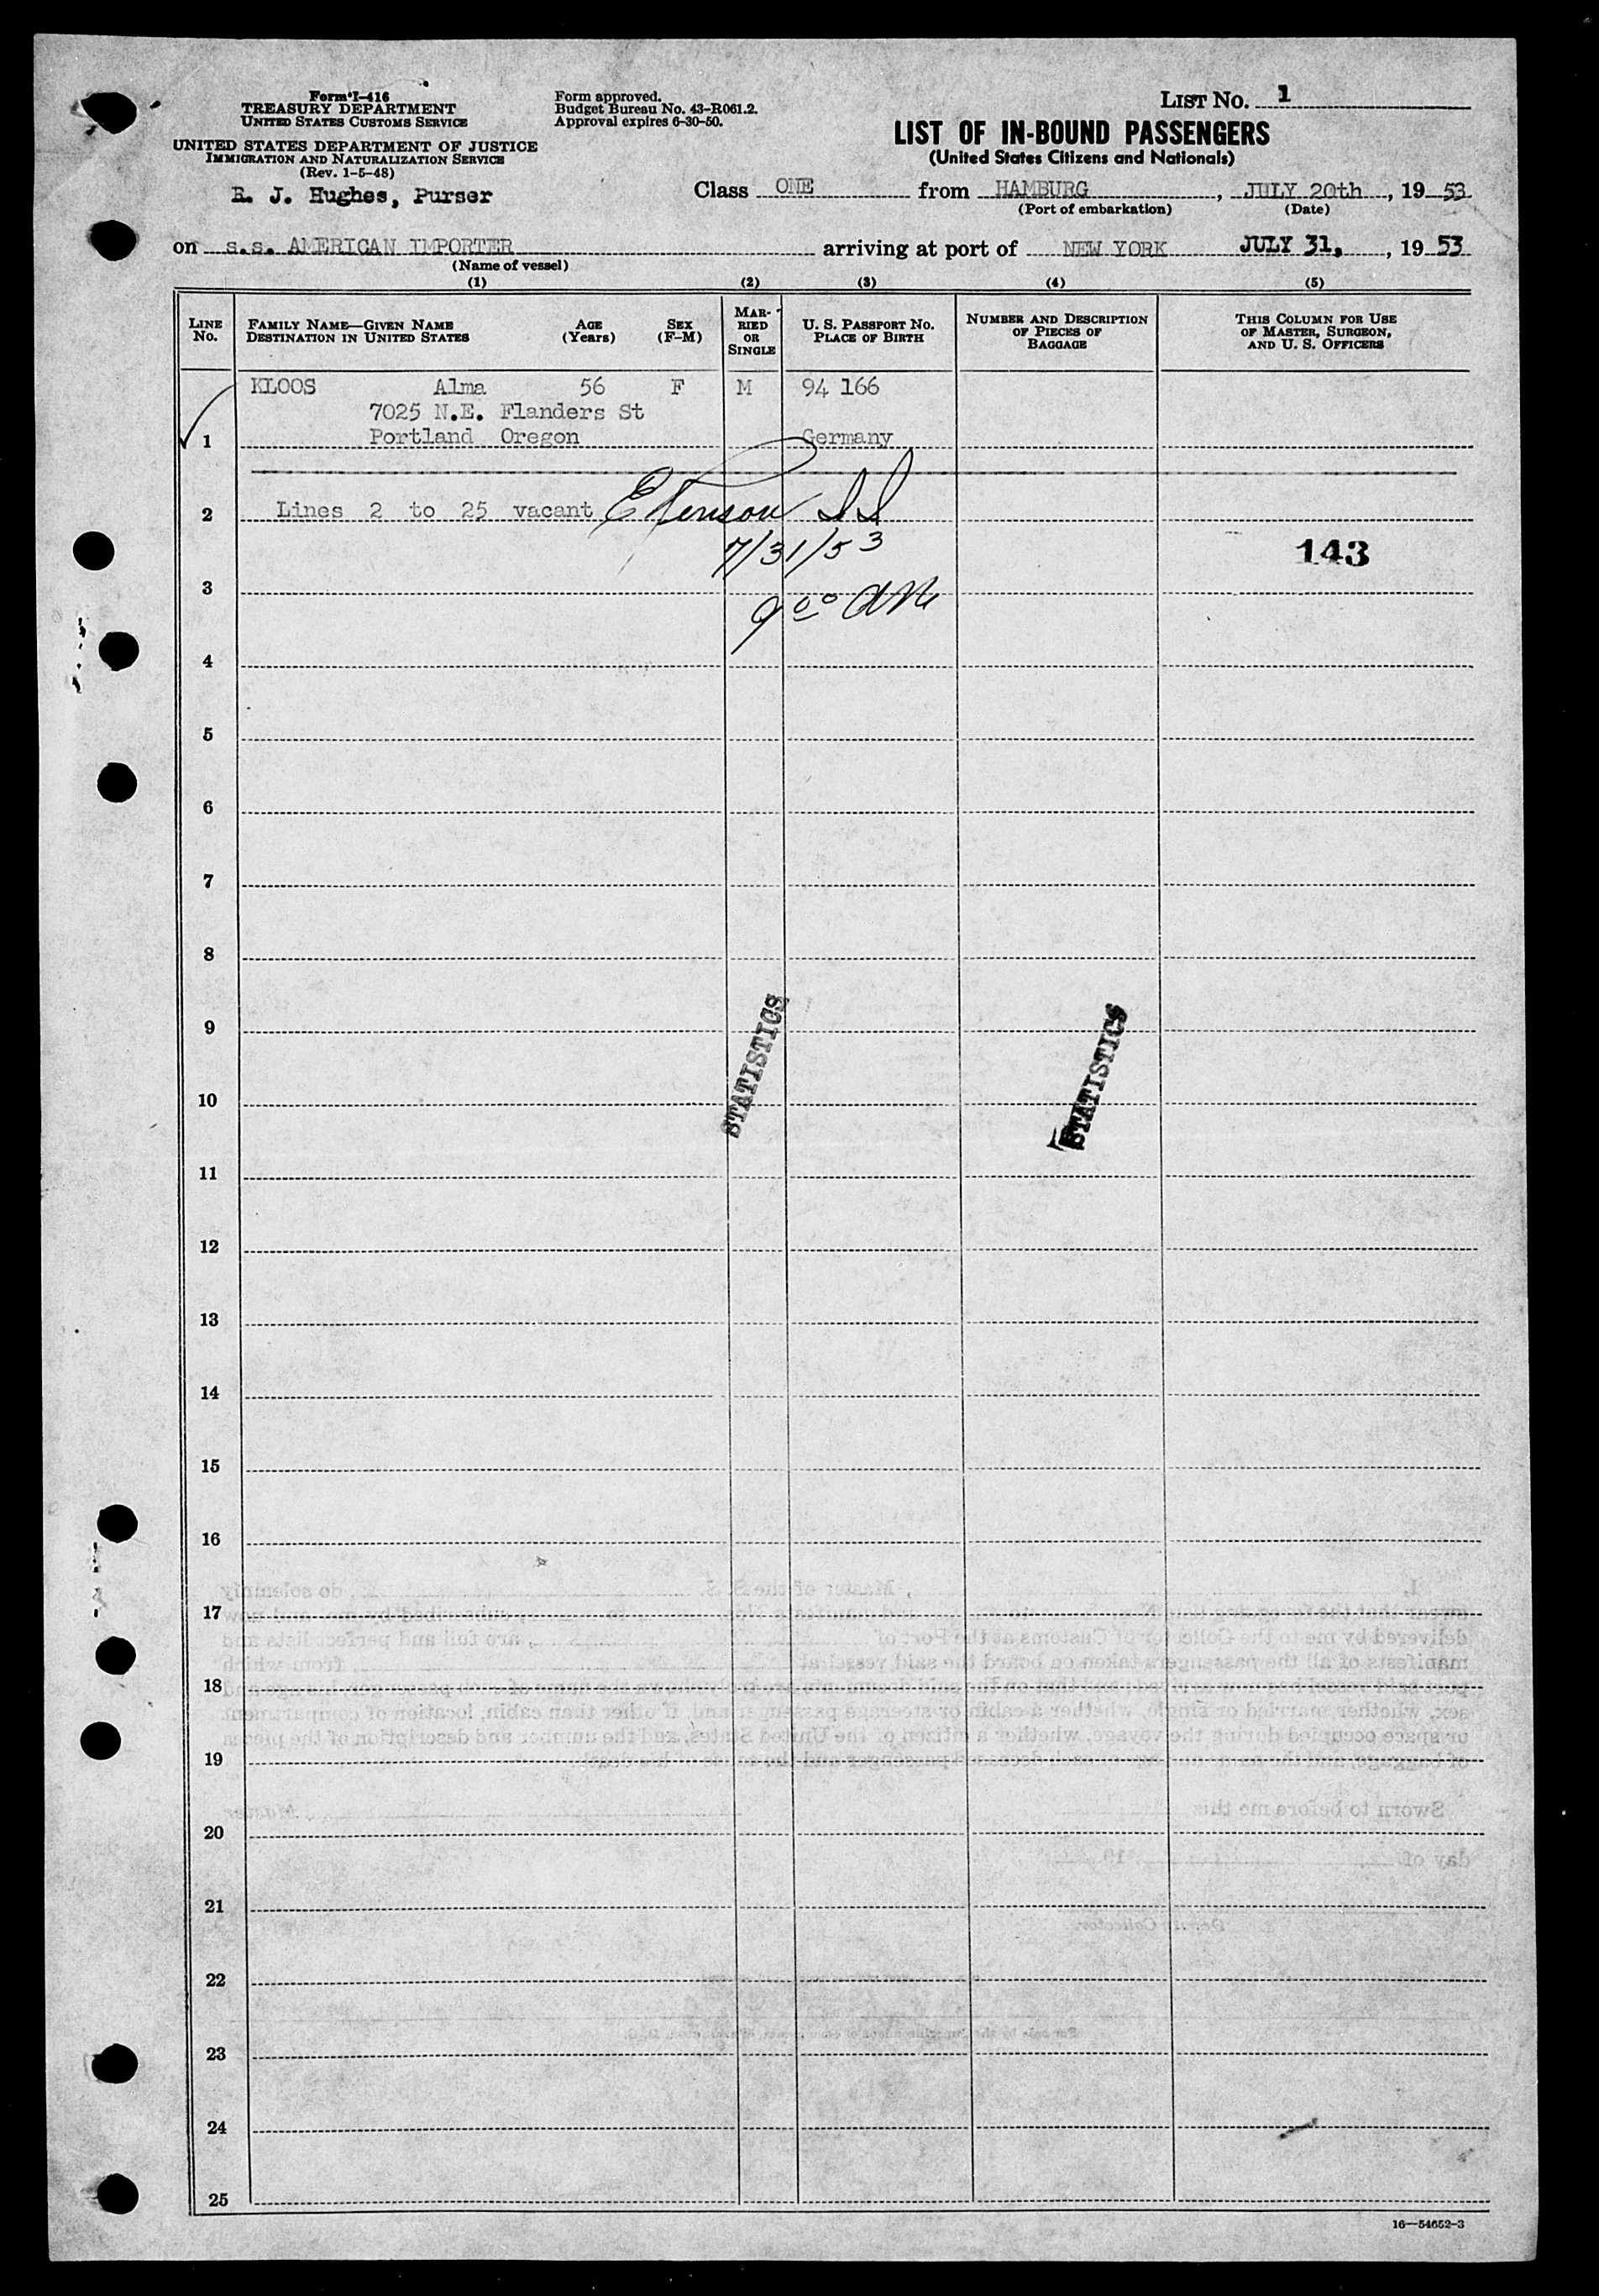 Form I-416
TREASURY DEPARTMENT
UNITED STATES CUSTOMS SERVICE
UNITED STATES DEPARTMENT OF JUSTICE
IMMIGRATION AND NATURALIZATION SERVICE
(Rev. 1-5-48)
R. J. Hughes, Purser
Form approved.
Budget Bureau No. 43-R061.2.
Approval expires 6-30-50.
LIST NO. 1
LIST OF IN-BOUND PASSENGERS
(United States Citizens and Nationals)
Class ONE from HAMBURG, JULY 20th, 19 53
(Port of embarkation) (Date)
on s.s. AMERICAN IMPORTER arriving at port of NEW YORK JULY 31, , 19 53
(Name of vessel)
(1) (2) (3) (4) (5)
LINE NO.
FAMILY NAME—GIVEN NAME
DESTINATION IN UNITED STATES
AGE (Years)
SEX (F-M)
MARRIED OR SINGLE
U. S. PASSPORT NO.
PLACE OF BIRTH
NUMBER AND DESCRIPTION OF PIECES OF BAGGAGE
THIS COLUMN FOR USE OF MASTER, SURGEON, AND U. S. OFFICERS
KLOOS Alma 56 F M 94 166
7025 N.E. Flanders St
1 Portland Oregon Germany
2 Lines 2 to 25 vacant
7/31/53
143
3
9 00 AM
4
5
6
7
8
9
STATISTICS STATISTICS
10
11
12
13
14
15
16
17
18
19
20
21
22
23
24
25
16—54652-3